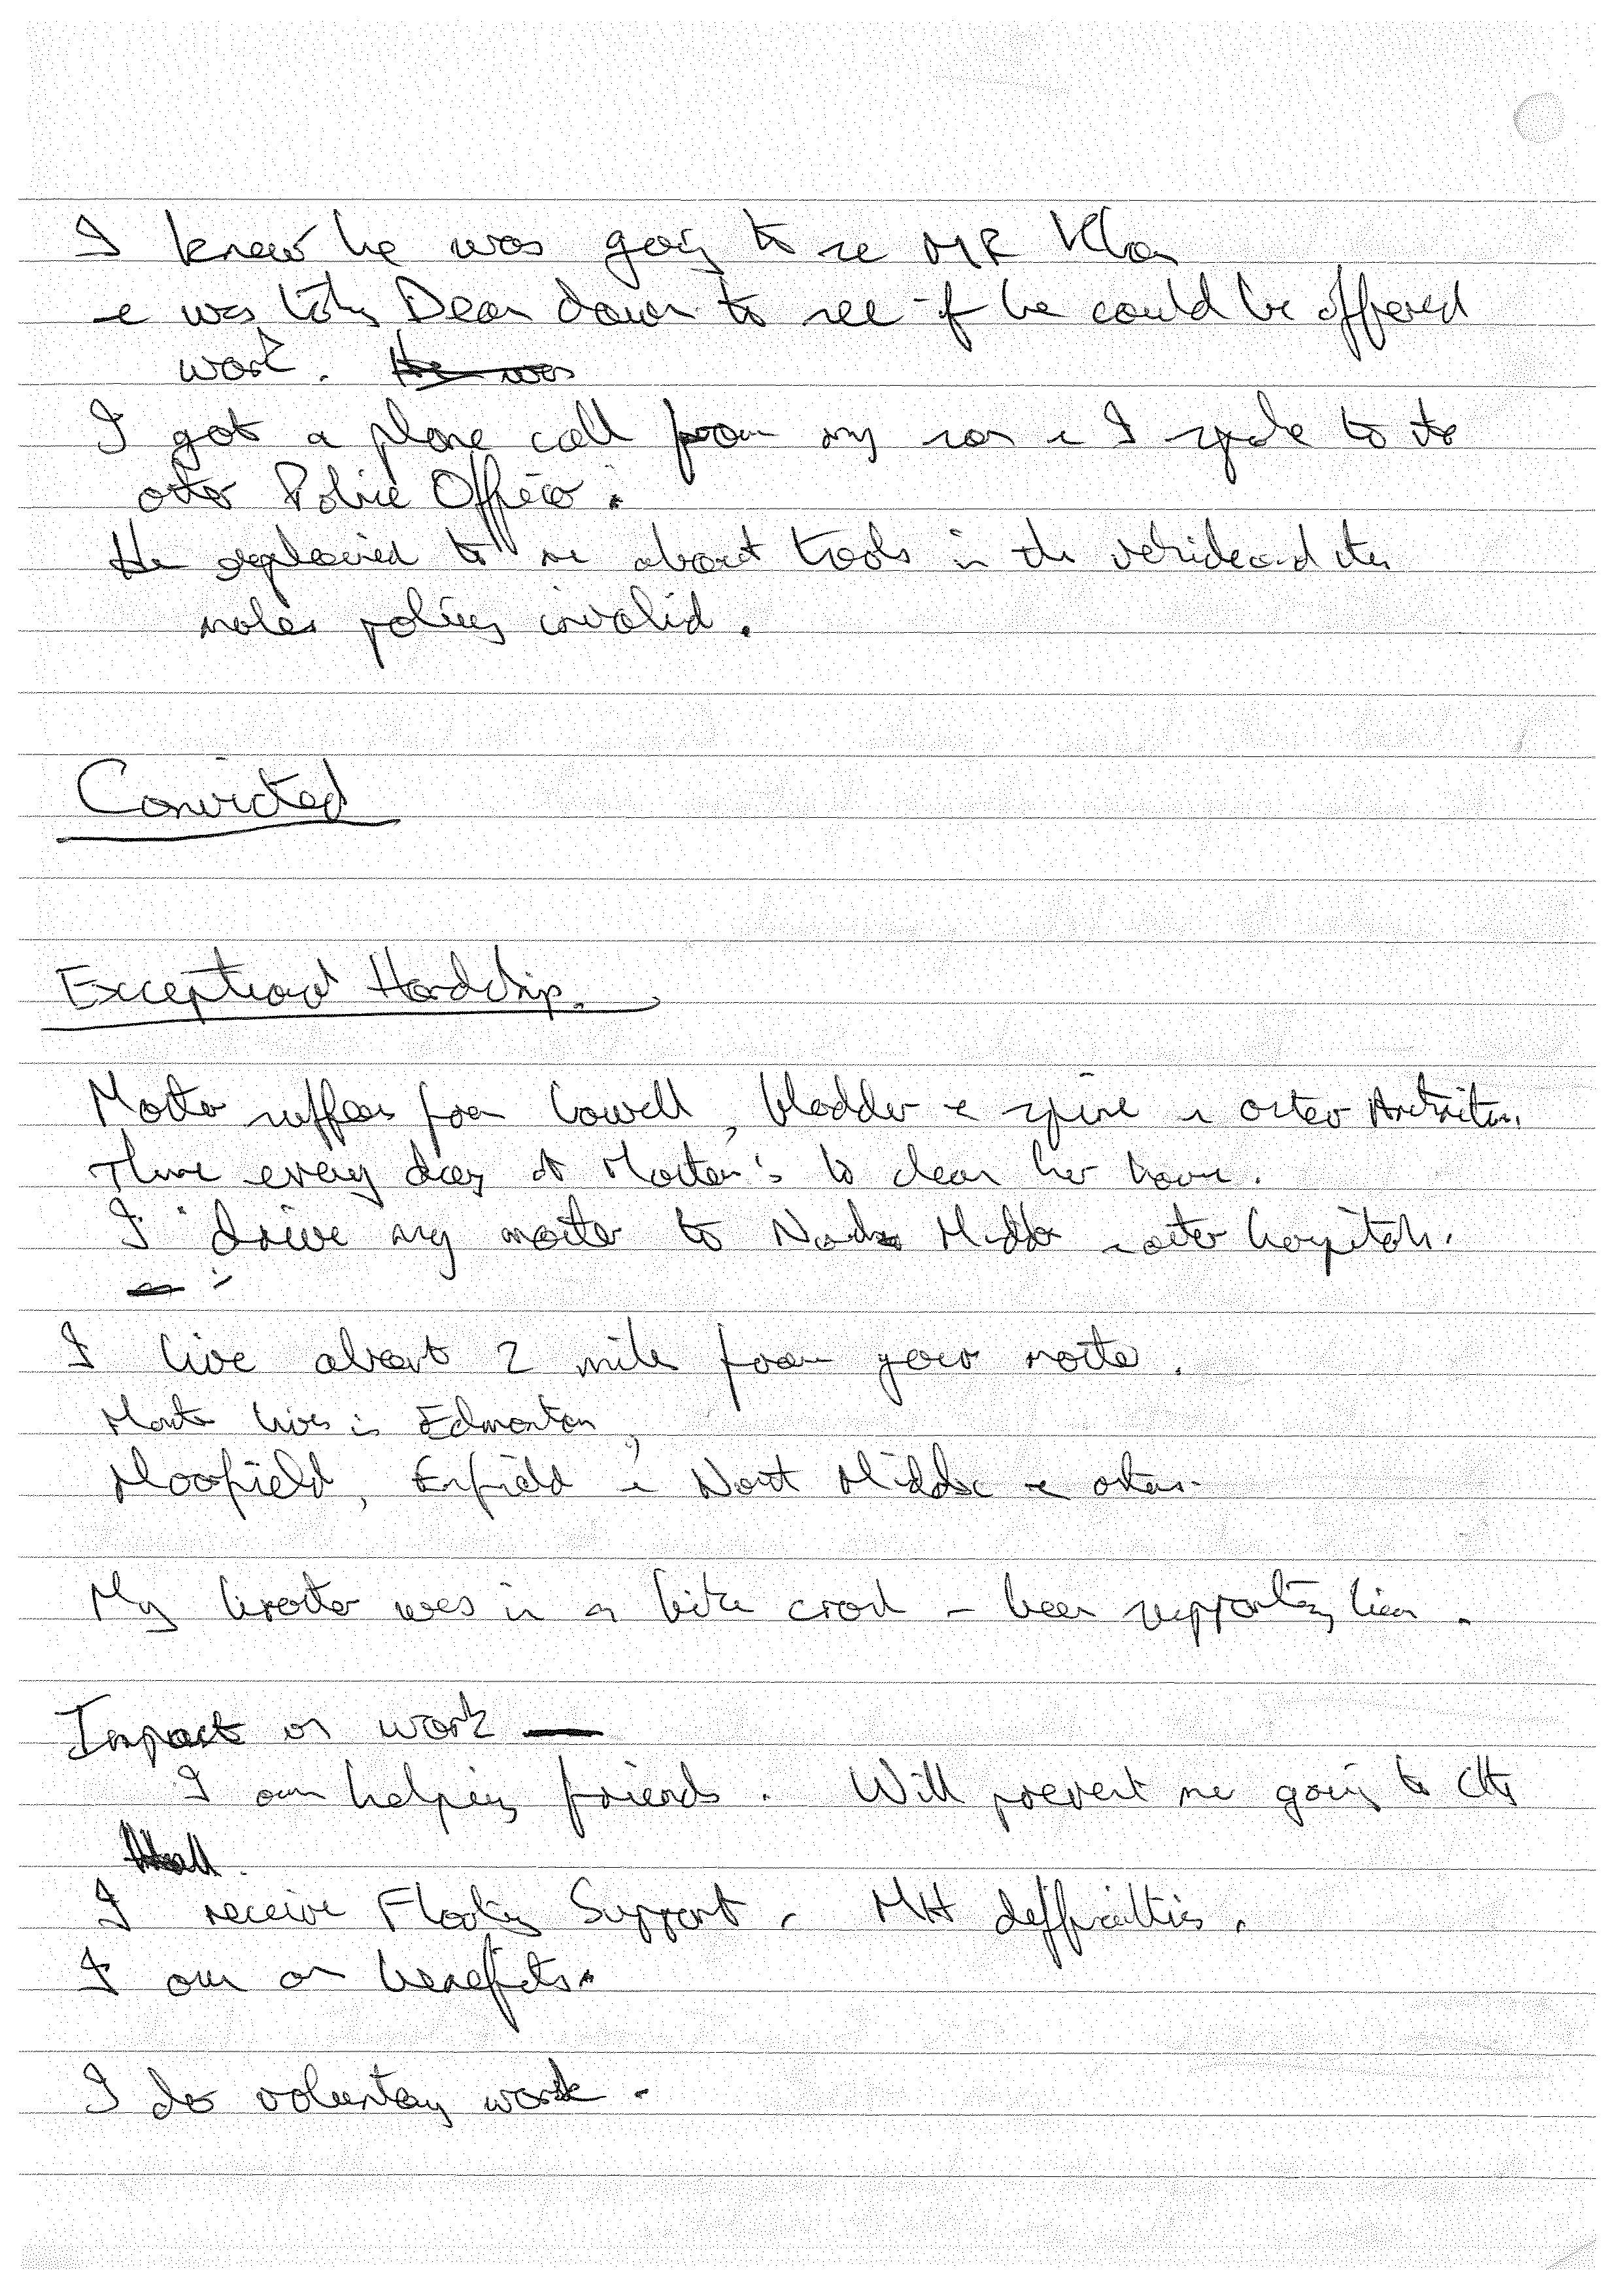 I knew he was going to see MR Khan
& was taking Dean down to see if he could be offered
work. He was
I got a phone call from my son & I spoke to the
other Police Officer.
He explained to me about tools in the vehicle and this
makes policy invalid.
Convicted
Exceptional Hardship.
Mother suffers from bowell, bladder & spine & osteo Arthritis.
There every day at Mother's to clean her home.
I drive my mother to North Middx & other hospitals.
I live about 2 miles from your mother.
Mother lives in Edmonton,
Moorfield, Enfield & North Middx & others.
My brother was in a bike crash - been supporting him.
Impact on work —
I am helping friends. Will prevent me going to
I receive Floating Support. MH difficulties.
I am on benefits.
I do voluntary work.